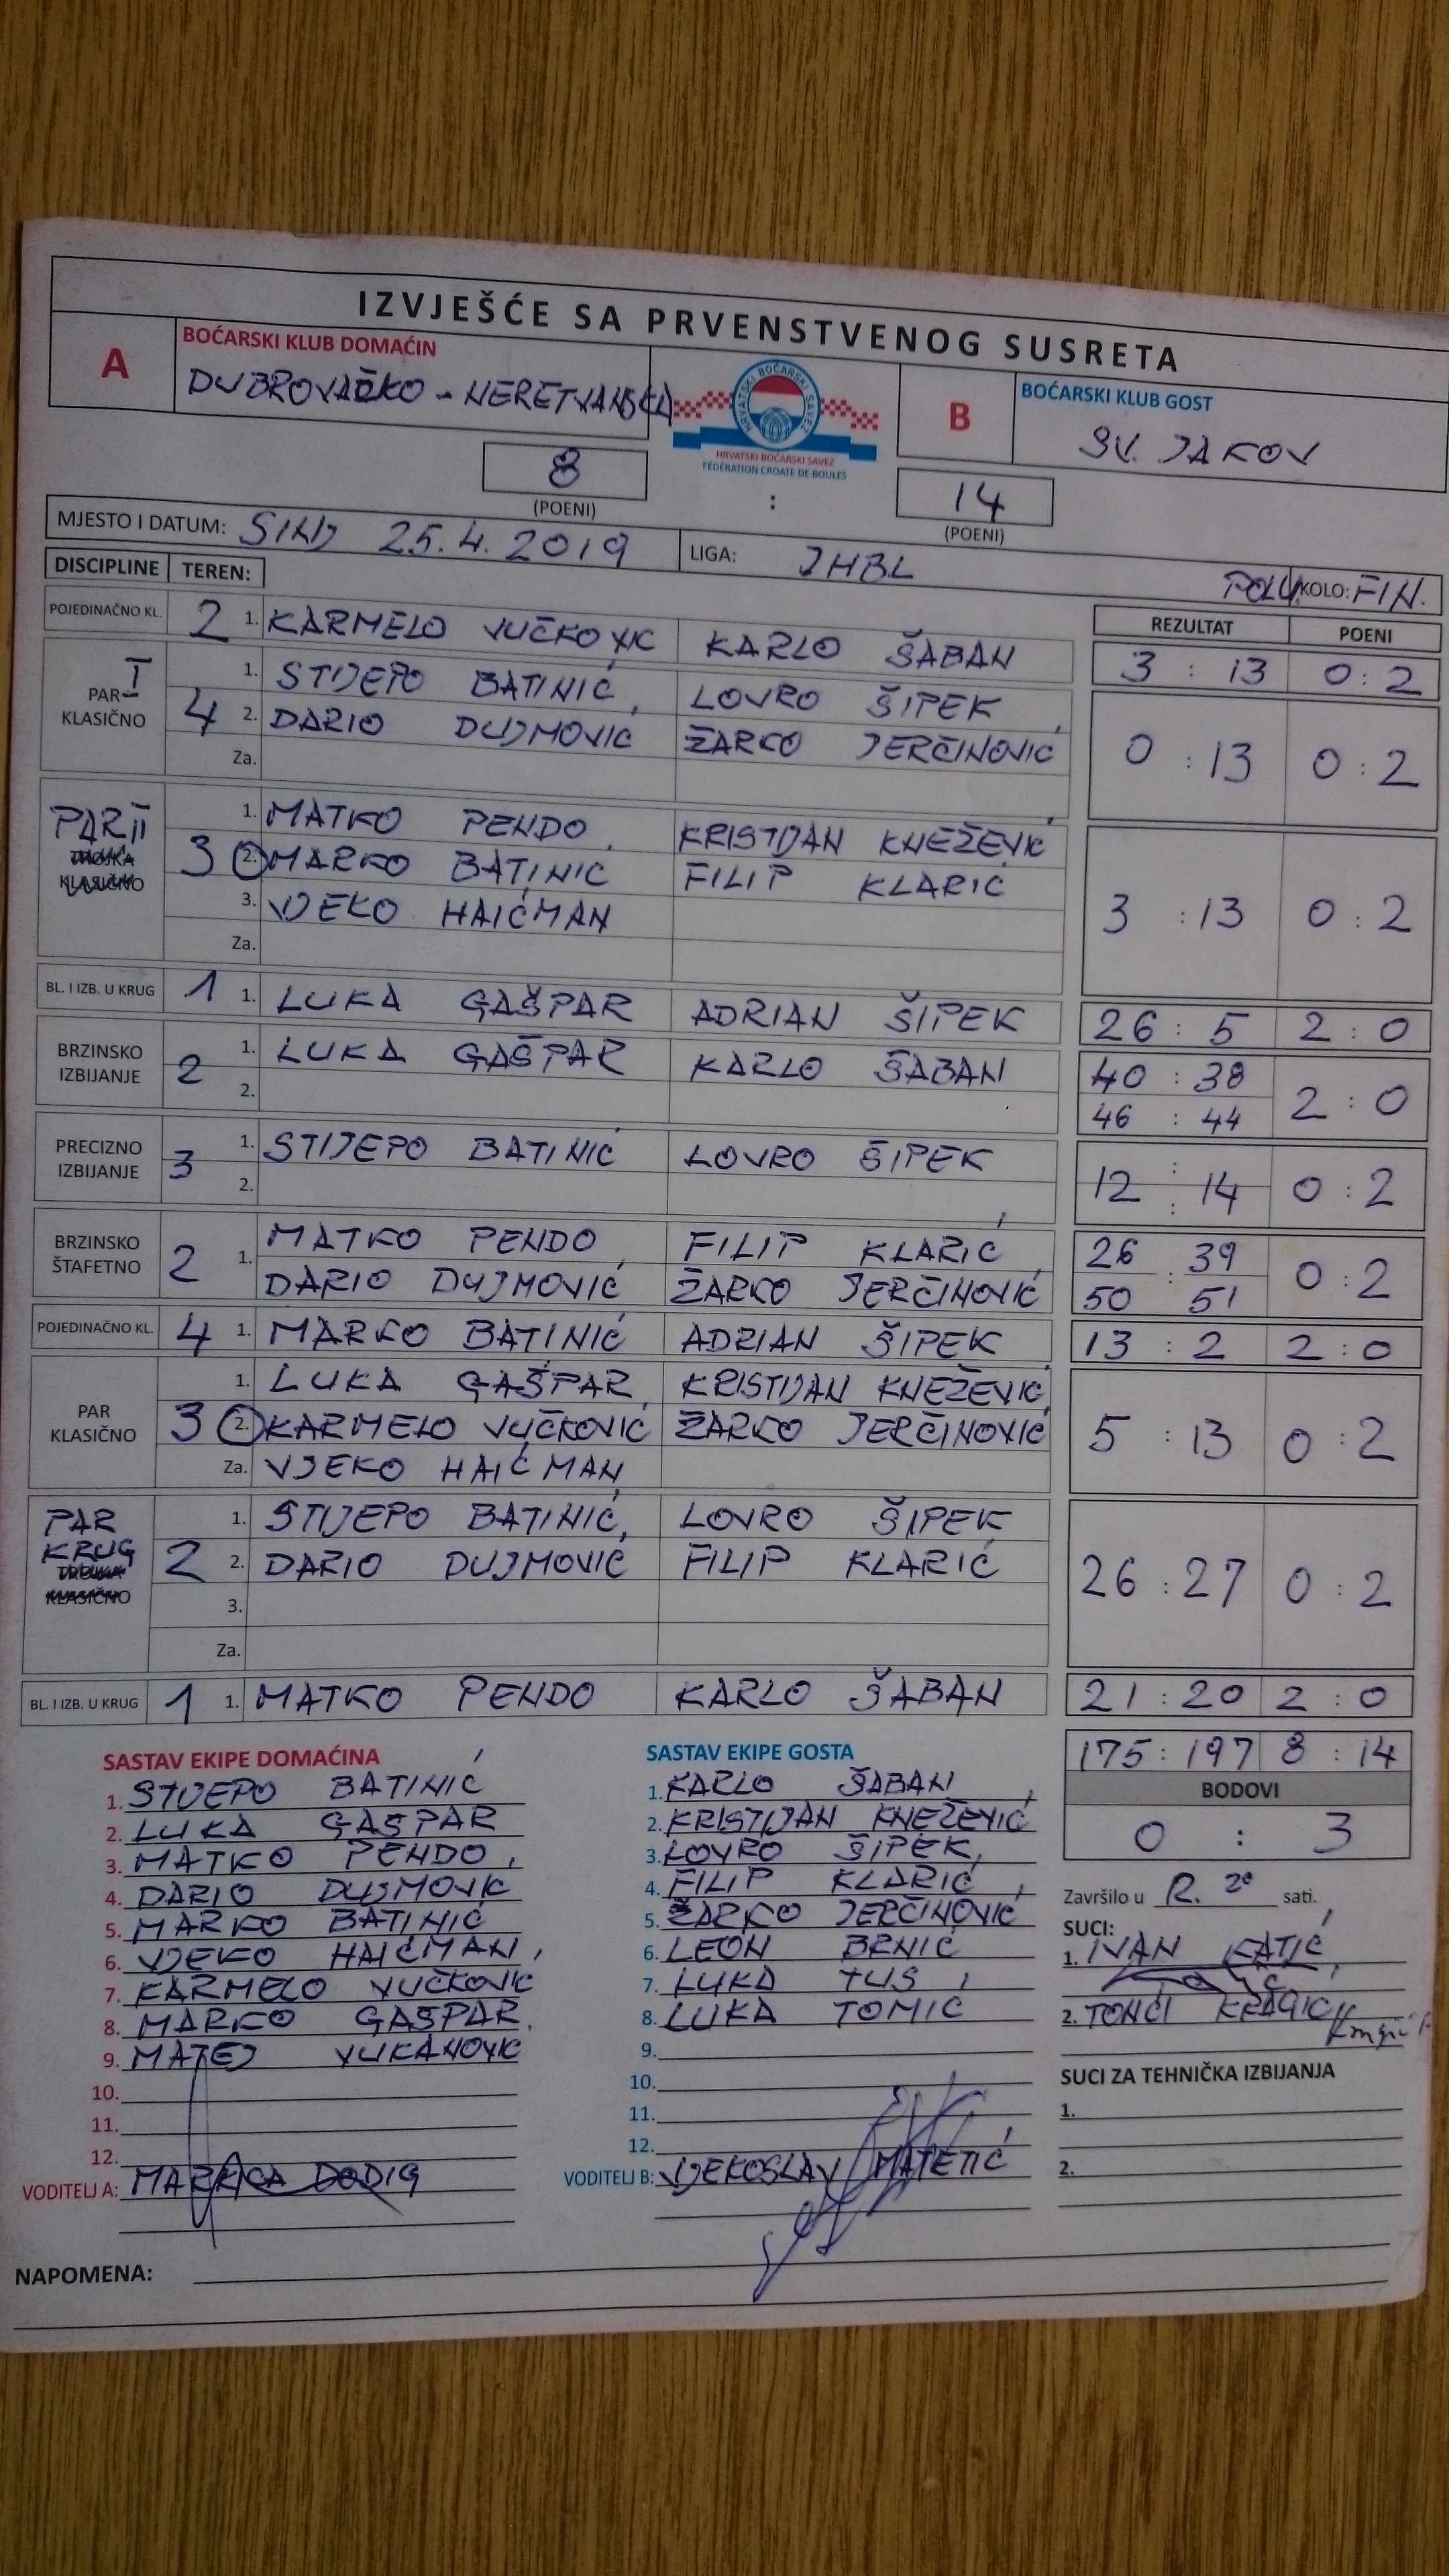 IZVJEŠĆE SA PRVENSTVENOG SUSRETA
A BOĆARSKI KLUB DOMAĆIN B BOĆARSKI KLUB GOST
DUBROVAČKO - NERETVANSKA SV. JAKOV
HRVATSKI BOĆARSKI SAVEZ
HRVATSKI BOĆARSKI SAVEZ
FÉDÉRATION CROATE DE BOULES
8 : 14
(POENI) (POENI)
MJESTO I DATUM: SINJ 25.4.2019 LIGA: JHBL POLU KOLO: FIN.
DISCIPLINE TEREN: REZULTAT POENI
POJEDINAČNO KL. 2 1. KARMELO VUČKOVIĆ KARLO ŠABAN 3 : 13 0 : 2
PAR I KLASIČNO 4 1. STIJEPO BATINIĆ, LOVRO ŠIPEK, 0 : 13 0 : 2
2. DARIO DUJMOVIĆ ŽARKO JERČINOVIĆ
Za.
PAR II 3 1. MATKO PENDO, KRISTIJAN KNEŽEVIĆ 3 : 13 0 : 2
TROJKA KLASIČNO 2. MARKO BATINIĆ FILIP KLARIĆ
3. VJEKO HAIĆMAN
Za.
BL. I IZB. U KRUG 1 1. LUKA GAŠPAR ADRIAN ŠIPEK 26 : 5 2 : 0
BRZINSKO IZBIJANJE 2 1. LUKA GAŠPAR KARLO ŠABAN 40 : 38 2 : 0
2. 46 : 44
PRECIZNO IZBIJANJE 3 1. STIJEPO BATINIĆ LOVRO ŠIPEK : 0 : 2
2. 12 : 14
BRZINSKO ŠTAFETNO 2 1. MATKO PENDO, FILIP KLARIĆ, 26 : 39 0 : 2
DARIO DUJMOVIĆ ŽARKO JERČINOVIĆ 50 51
POJEDINAČNO KL. 4 1. MARKO BATINIĆ ADRIAN ŠIPEK 13 : 2 2 : 0
PAR KLASIČNO 3 1. LUKA GAŠPAR, KRISTIJAN KNEŽEVIĆ, 5 : 13 0 : 2
2. KARMELO VUČKOVIĆ ŽARKO JERČINOVIĆ
Za. VJEKO HAIĆMAN
PAR KRUG 2 1. STIJEPO BATINIĆ, LOVRO ŠIPEK 26 : 27 0 : 2
TROJKA KLASIČNO 2. DARIO DUJMOVIĆ FILIP KLARIĆ
3.
Za.
BL. I IZB. U KRUG 1 1. MATKO PENDO KARLO ŠABAN 21 : 20 2 : 0
175 : 197 8 : 14
BODOVI
0 : 3
SASTAV EKIPE DOMAĆINA
1. STIJEPO BATINIĆ
2. LUKA GAŠPAR
3. MATKO PENDO,
4. DARIO DUJMOVIĆ
5. MARKO BATINIĆ
6. VJEKO HAIĆMAN,
7. KARMELO VUČKOVIĆ
8. MARKO GAŠPAR,
9. MATEJ VUKANOVIĆ
10.
11.
12.
VODITELJ A: MARKICA DODIG
SASTAV EKIPE GOSTA
1. KARLO ŠABAN,
2. KRISTIJAN KNEŽEVIĆ
3. LOVRO ŠIPEK,
4. FILIP KLARIĆ,
5. ŽARKO JERČINOVIĆ
6. LEON BRNIĆ
7. LUKA TUS,
8. LUKA TOMIĆ
9.
10.
11.
12.
VODITELJ B: VJEKOSLAV MATETIĆ
Završilo u 12.20 sati.
SUCI:
1. IVAN KATIĆ,
2. TONĆI KRAGIĆ
SUCI ZA TEHNIČKA IZBIJANJA
1.
2.
NAPOMENA: